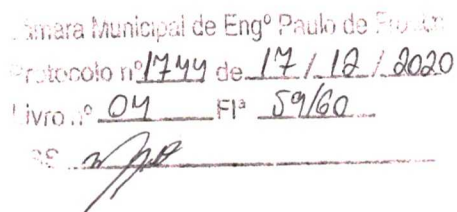 Câmara Municipal de Engº Paulo de
Protocolo nº 1744 de 17 / 12 / 2020
Livro nº 04 Flª 59/60